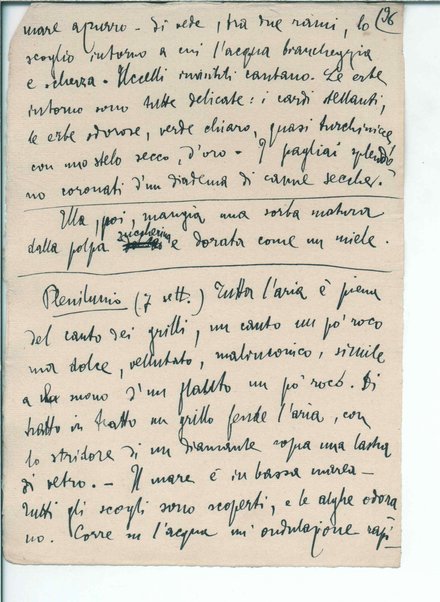 196
mare azzurro - si vede, fra due rami, lo
scoglio intorno a cui l'acqua biancheggia
e scherza. Uccelli invisibili cantano. Le erbe
intorno sono tutte delicate: i cardi stellanti,
le erbe odorose, verde chiaro, quasi turchinicce
con uno stelo secco, d'oro - I pagliai splendo
no coronati d'un diadema di canne secche.
Ella, poi, mangia una sorba matura
dalla polpa zuccherina e dorata come un miele.
Plenilunio (7 sett.) Tutta l'aria è piena
del canto dei grilli, un canto un po' roco
ma dolce, vellutato, malinconico, simile
a suono d'un flauto un po' roco. Di
tratto in tratto un grillo fende l'aria, con
lo stridore di un diamante sopra una lastra
di vetro. - Il mare è in bassa marea -
tutti gli scogli sono scoperti, e le alghe odora
no. Corre su l'acqua un'ondulazione rapi-